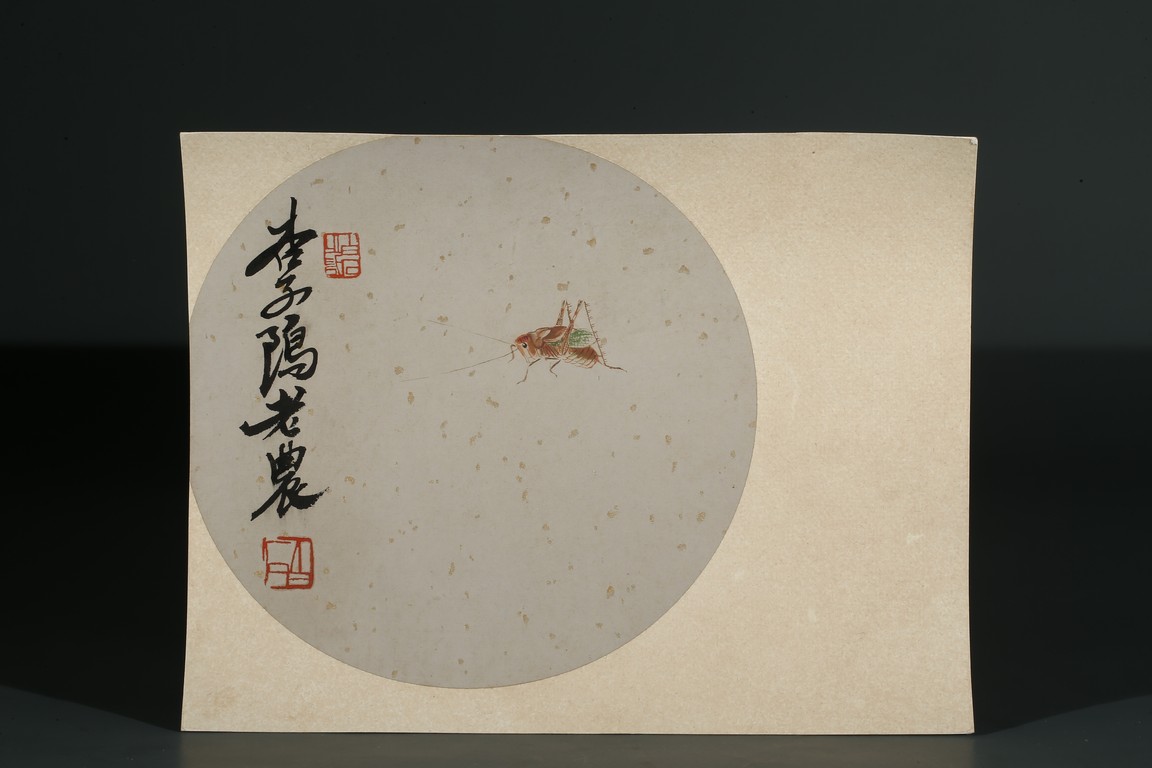 杏子隖老農